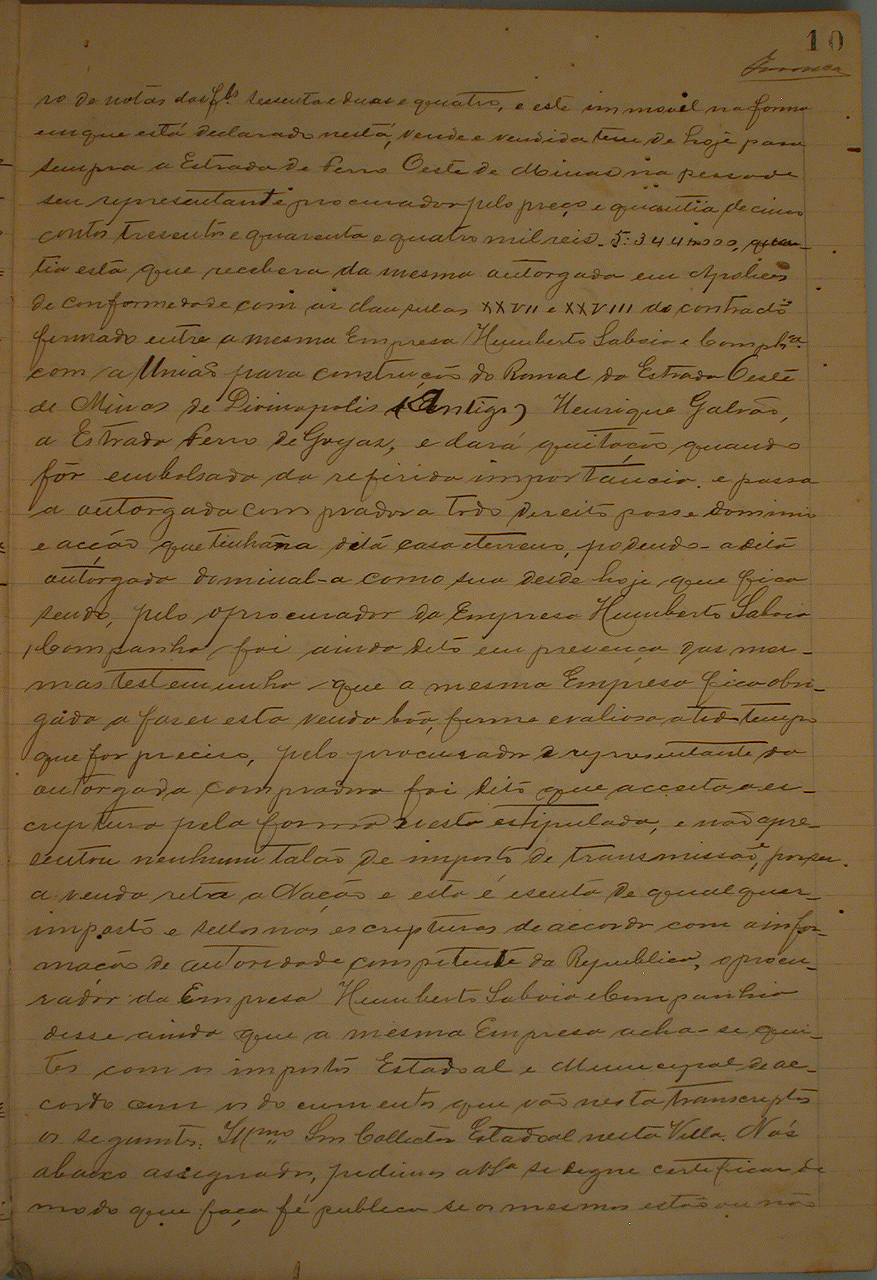 10
ro de notas das fls sessenta e duas e quatro, e este immovel na forma
em que está declarado nesta, vende e vendida tem de hoje para
sempra a Estrada de Ferro Oeste de Minas na pessoa de
seu representante e procurador pelo preço e quantia de cinco
contos tresentos e quarenta e quatro mil reis. 5:344$000, quan-
tia esta que recebera da mesma autorgada em Apolices
de conformedade com as clausulas XXVII e XXVIII do contracto
firmado entre a mesma Empresa Humberto Saboia e Comphia.
com a União para construcção do Ramal da Estrada Oeste
de Minas de Divinopolis (Antigo) Henrique Galvão,
a Estrada Ferro de Goyaz, e dará quitação quando
fôr embolsada da referida importancia. e passa
a autorgada compradora todo direito posse dominio
e acção que tinha na dita casa e terreno, podendo a dita
autorgada dominal-a como sua desde hoje que fica
sendo, pelo procurador da Empresa Humberto Saboia
Companhia foi ainda dito em presença das mes-
mas testemunha que a mesma Empresa fica obri-
gada a fazer esta venda bôa, firme e valiosa a todo tempo
que for preciso, pelo procurador e representante da
autorgada compradora foi dito que acceita a es-
criptura pela forma nesta estipulada, e não apre-
sentou nenhum talão de imposto de transmissão, por ser
a venda feita a Nação e esta é isenta de qualquer
imposto e sellos nas escripturas de accordo com a infor-
mação de autoridade competente da Republica, o procu-
rador da Empresa Humberto Saboia e Companhia
disse ainda que a mesma Empresa acha-se qui-
tes com os impostos Estadoal e Municipal de ac-
cordo com os documentos que vão nesta transcriptos
os seguintes: Illmo Snr Collector Estadoal nesta Villa. Nós
abaixo assignados, pedimos a VSa se digne certificar de
modo que faça fé publica se os mesmos estão ou não